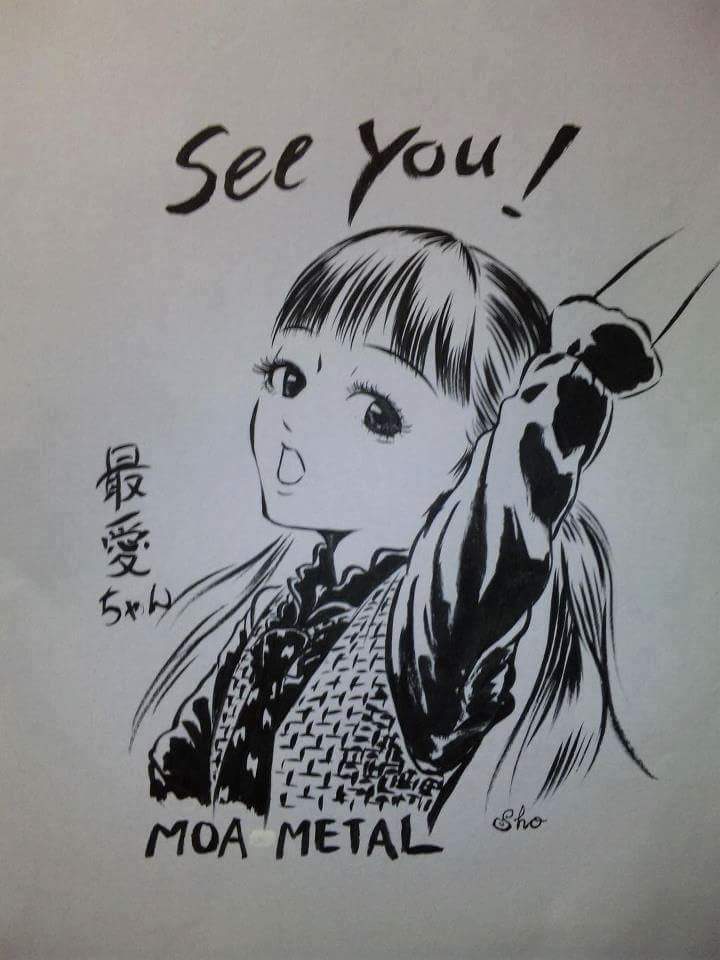 See You!
最愛ちゃん
MOA METAL
Sho